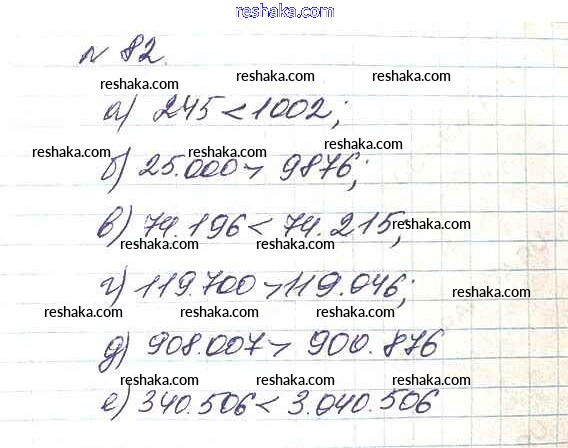 www.reshaka.com
№ 82.
reshaka.com reshaka.com reshaka.com
а) 245 < 1002;
reshaka.com reshaka.com
б) 25.000 > 9876;
reshaka.com reshaka.com reshaka.com
в) 74.196 < 74.215;
reshaka.com reshaka.com
г) 119.700 > 119.046;
reshaka.com reshaka.com reshaka.com
д) 908.007 > 900.876
reshaka.com reshaka.com
е) 340.506 < 3.040.506
reshaka.com reshaka.com reshaka.com